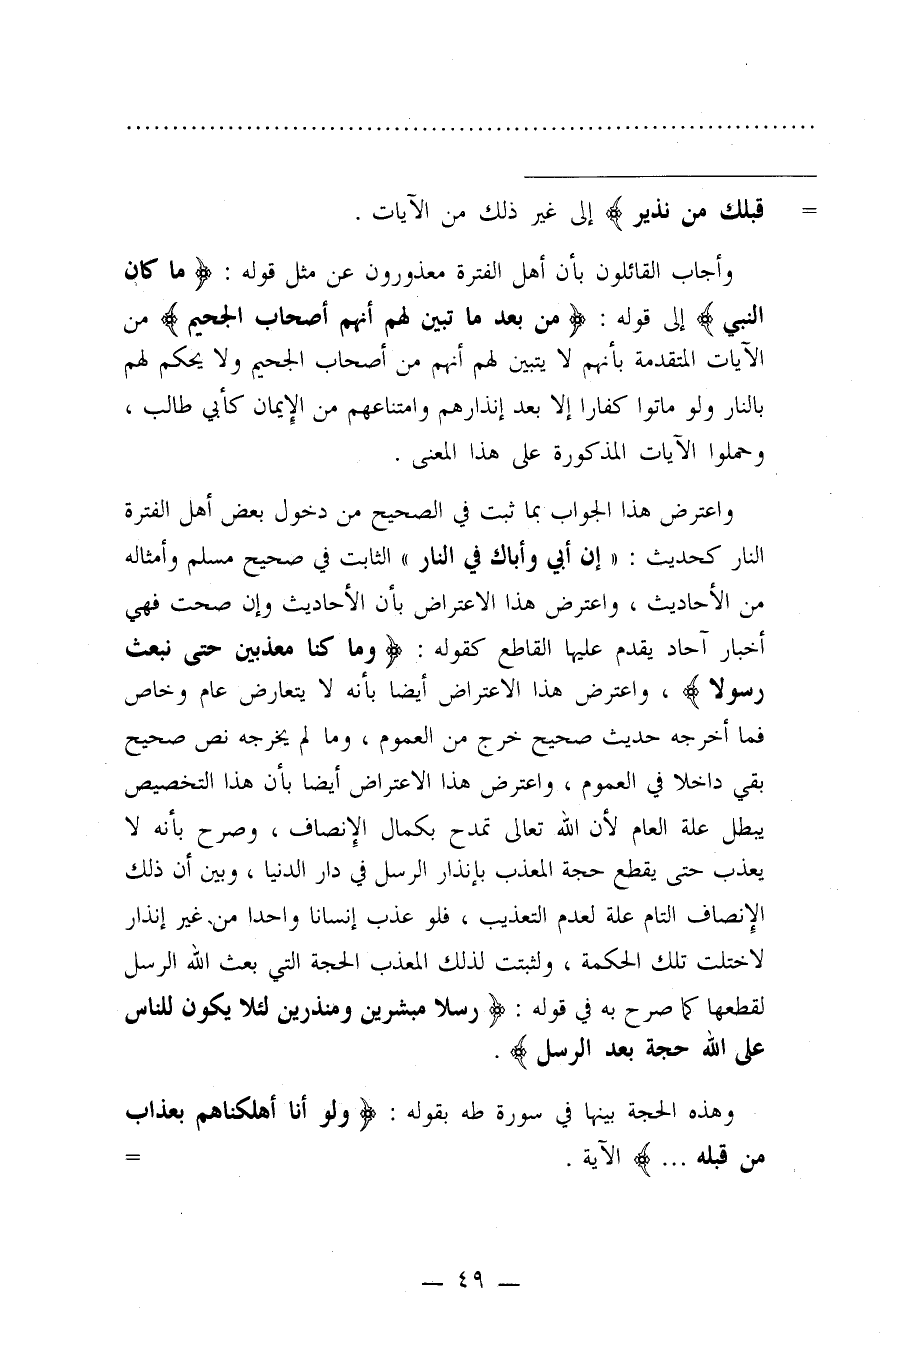 ................................................................
= قبلك من نذير ﴾ إلى غير ذلك من الآيات .
وأجاب القائلون بأن أهل الفترة معذورون عن مثل قوله : ﴿ ما كان
النبي ﴾ إلى قوله : ﴿ من بعد ما تبين لهم أنهم أصحاب الجحيم ﴾ من
الآيات المتقدمة بأنهم لا يتبين لهم أنهم من أصحاب الجحيم ولا يحكم لهم
بالنار ولو ماتوا كفارا إلا بعد إنذارهم وامتناعهم من الإيمان كأبي طالب ،
وحملوا الآيات المذكورة على هذا المعنى .
واعترض هذا الجواب بما ثبت في الصحيح من دخول بعض أهل الفترة
النار كحديث : « إن أبي وأباك في النار » الثابت في صحيح مسلم وأمثاله
من الأحاديث ، واعترض هذا الاعتراض بأن الأحاديث وإن صحت فهي
أخبار آحاد يقدم عليها القاطع كقوله : ﴿ وما كنا معذبين حتى نبعث
رسولا ﴾ ، واعترض هذا الاعتراض أيضا بأنه لا يتعارض عام وخاص
فما أخرجه حديث صحيح خرج من العموم ، وما لم يخرجه نص صحيح
بقي داخلا في العموم ، واعترض هذا الاعتراض أيضا بأن هذا التخصيص
يبطل علة العام لأن الله تعالى تمدح بكمال الإنصاف ، وصرح بأنه لا
يعذب حتى يقطع حجة المعذب بإنذار الرسل في دار الدنيا ، وبين أن ذلك
الإنصاف التام علة لعدم التعذيب ، فلو عذب إنسانا واحدا من غير إنذار
لاختلت تلك الحكمة ، ولثبتت لذلك المعذب الحجة التي بعث الله الرسل
لقطعها كما صرح به في قوله : ﴿ رسلا مبشرين ومنذرين لئلا يكون للناس
على الله حجة بعد الرسل ﴾ .
وهذه الحجة بينها في سورة طه بقوله : ﴿ ولو أنا أهلكناهم بعذاب
من قبله ... ﴾ الآية . =
— ٤٩ —